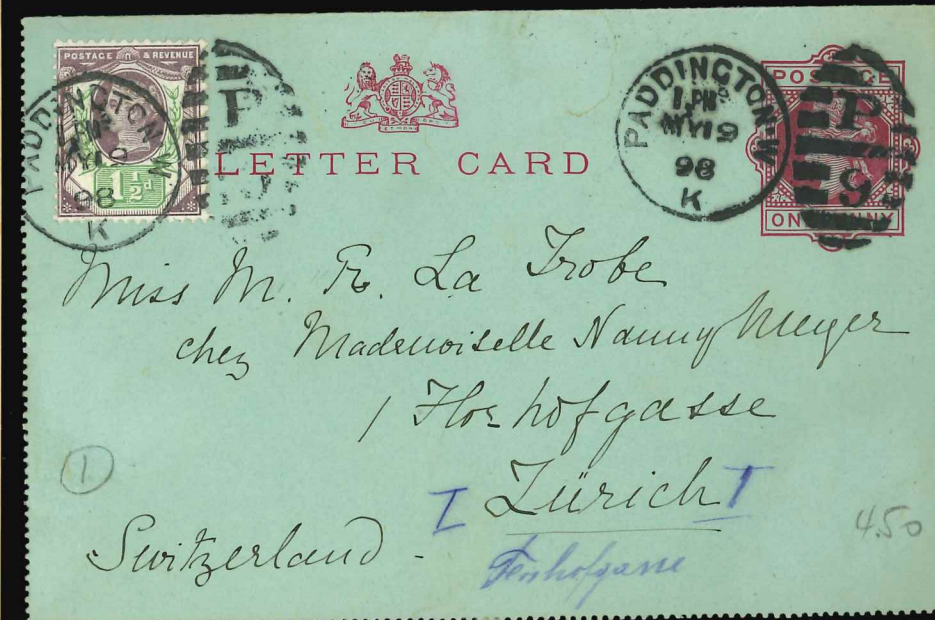 POSTAGE & REVENUE
1½d
PADDINGTON W
1 PM
MY 19
98
K
P
LETTER CARD
PADDINGTON W
1 PM
MY 19
98
K
P
9
POSTAGE
ONE PENNY
Miss M. R. La Trobe
chez Mademoiselle Nanny Meyer
1 Florhofgasse
I Zürich I
Switzerland -
Florhofgasse
1
4.50